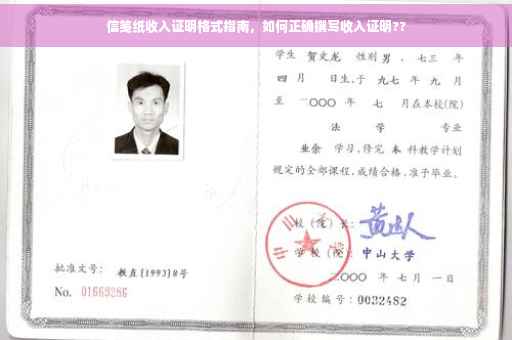 信笺纸收入证明格式指南，如何正确撰写收入证明??
学生 贺文龙 性别 男 、七三 年
四 月 日生,于 九七 年 九 月
至 二〇〇〇 年 七 月在本校(院)
法 学 专业
业余 学习,修完 本 科教学计划
规定的全部课程,成绩合格,准予毕业。
校（院）长:
学校（院）: 中山大学
二〇〇〇 年 七 月 一 日
学校编号: 0032482
批准文号: 教直[1993]8号
No. 01669286
中山大学